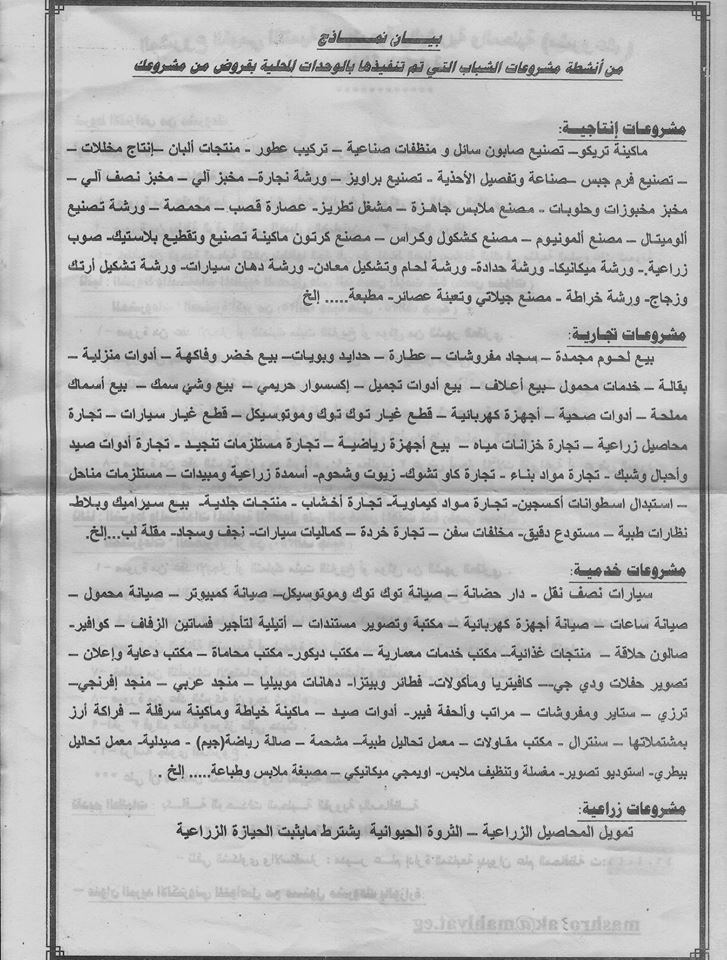 بيـــان نمـــاذج
من أنشطة مشروعات الشباب التي تم تنفيذها بالوحدات المحلية بقروض من مشروعك
مشروعات إنتاجية:
ماكينة تريكو– تصنيع صابون سائل و منظفات صناعية – تركيب عطور - منتجات ألبان –إنتاج مخللات –
– تصنيع فرم جبس –صناعة وتفصيل الأحذية - تصنيع براويز – ورشة نجارة– مخبز آلي – مخبز نصف آلي –
مخبز مخبوزات وحلويات - مصنع ملابس جاهزة – مشغل تطريز- عصارة قصب – محمصة – ورشة تصنيع
ألوميتال – مصنع ألمونيوم – مصنع كشكول وكراس – مصنع كرتون ماكينة تصنيع وتقطيع بلاستيك- صوب
زراعية - ورشة ميكانيكا- ورشة حدادة- ورشة لحام وتشكيل معادن- ورشة دهان سيارات- ورشة تشكيل أرتك
وزجاج- ورشة خراطة - مصنع جيلاتي وتعبئة عصائر- مطبعة..... إلخ
مشروعات تجارية:
بيع لحوم مجمدة – سجاد مفروشات – عطارة – حدايد وبويات– بيع خضر وفاكهة – أدوات منزلية –
بقالة – خدمات محمول –بيع أعلاف – بيع أدوات تجميل – إكسسوار حريمي – بيع وشي سمك – بيع أسماك
مملحة – أدوات صحية – أجهزة كهربائية – قطع غيار توك توك وموتوسيكل – قطع غيار سيارات – تجارة
محاصيل زراعية – تجارة خزانات مياه – بيع أجهزة رياضية – تجارة مستلزمات تنجيد - تجارة أدوات صيد
وأحبال وشبك - تجارة مواد بناء - تجارة كاوتشوك- زيوت وشحوم- أسمدة زراعية ومبيدات – مستلزمات مناحل
– استبدال اسطوانات أكسجين- تجارة مواد كيماوية- تجارة أخشاب - منتجات جلدية- بيع سيراميك وبلاط-
نظارات طبية – مستودع دقيق- مخلفات سفن – تجارة خردة – كماليات سيارات- نجف وسجاد- مقلة لب...إلخ.
مشروعات خدمية:
سيارات نصف نقل - دار حضانة – صيانة توك توك وموتوسيكل– صيانة كمبيوتر – صيانة محمول –
صيانة ساعات – صيانة أجهزة كهربائية – مكتبة وتصوير مستندات - أتيلية لتأجير فساتين الزفاف – كوافير-
صالون حلاقة – منتجات غذائية- مكتب خدمات معمارية – مكتب ديكور- مكتب محاماة – مكتب دعاية وإعلان –
تصوير حفلات ودي جي— كافيتريا ومأكولات- فطائر وبيتزا- دهانات موبيليا - منجد عربي – منجد إفرنجي–
ترزي – ستاير ومفروشات – مراتب وألحفة فيبر- أدوات صيد – ماكينة خياطة وماكينة سرفلة – فراكة أرز
بمشتملاتها – سنترال - مكتب مقاولات – معمل تحاليل طبية– مشحمة – صالة رياضة(جيم) - صيدلية- معمل تحاليل
بيطري- استوديو تصوير- مغسلة وتنظيف ملابس- اويمجي ميكانيكي – مصبغة ملابس وطباعة..... إلخ .
مشروعات زراعية:
تمويل المحاصيل الزراعية – الثروة الحيوانية يشترط مايثبت الحيازة الزراعية